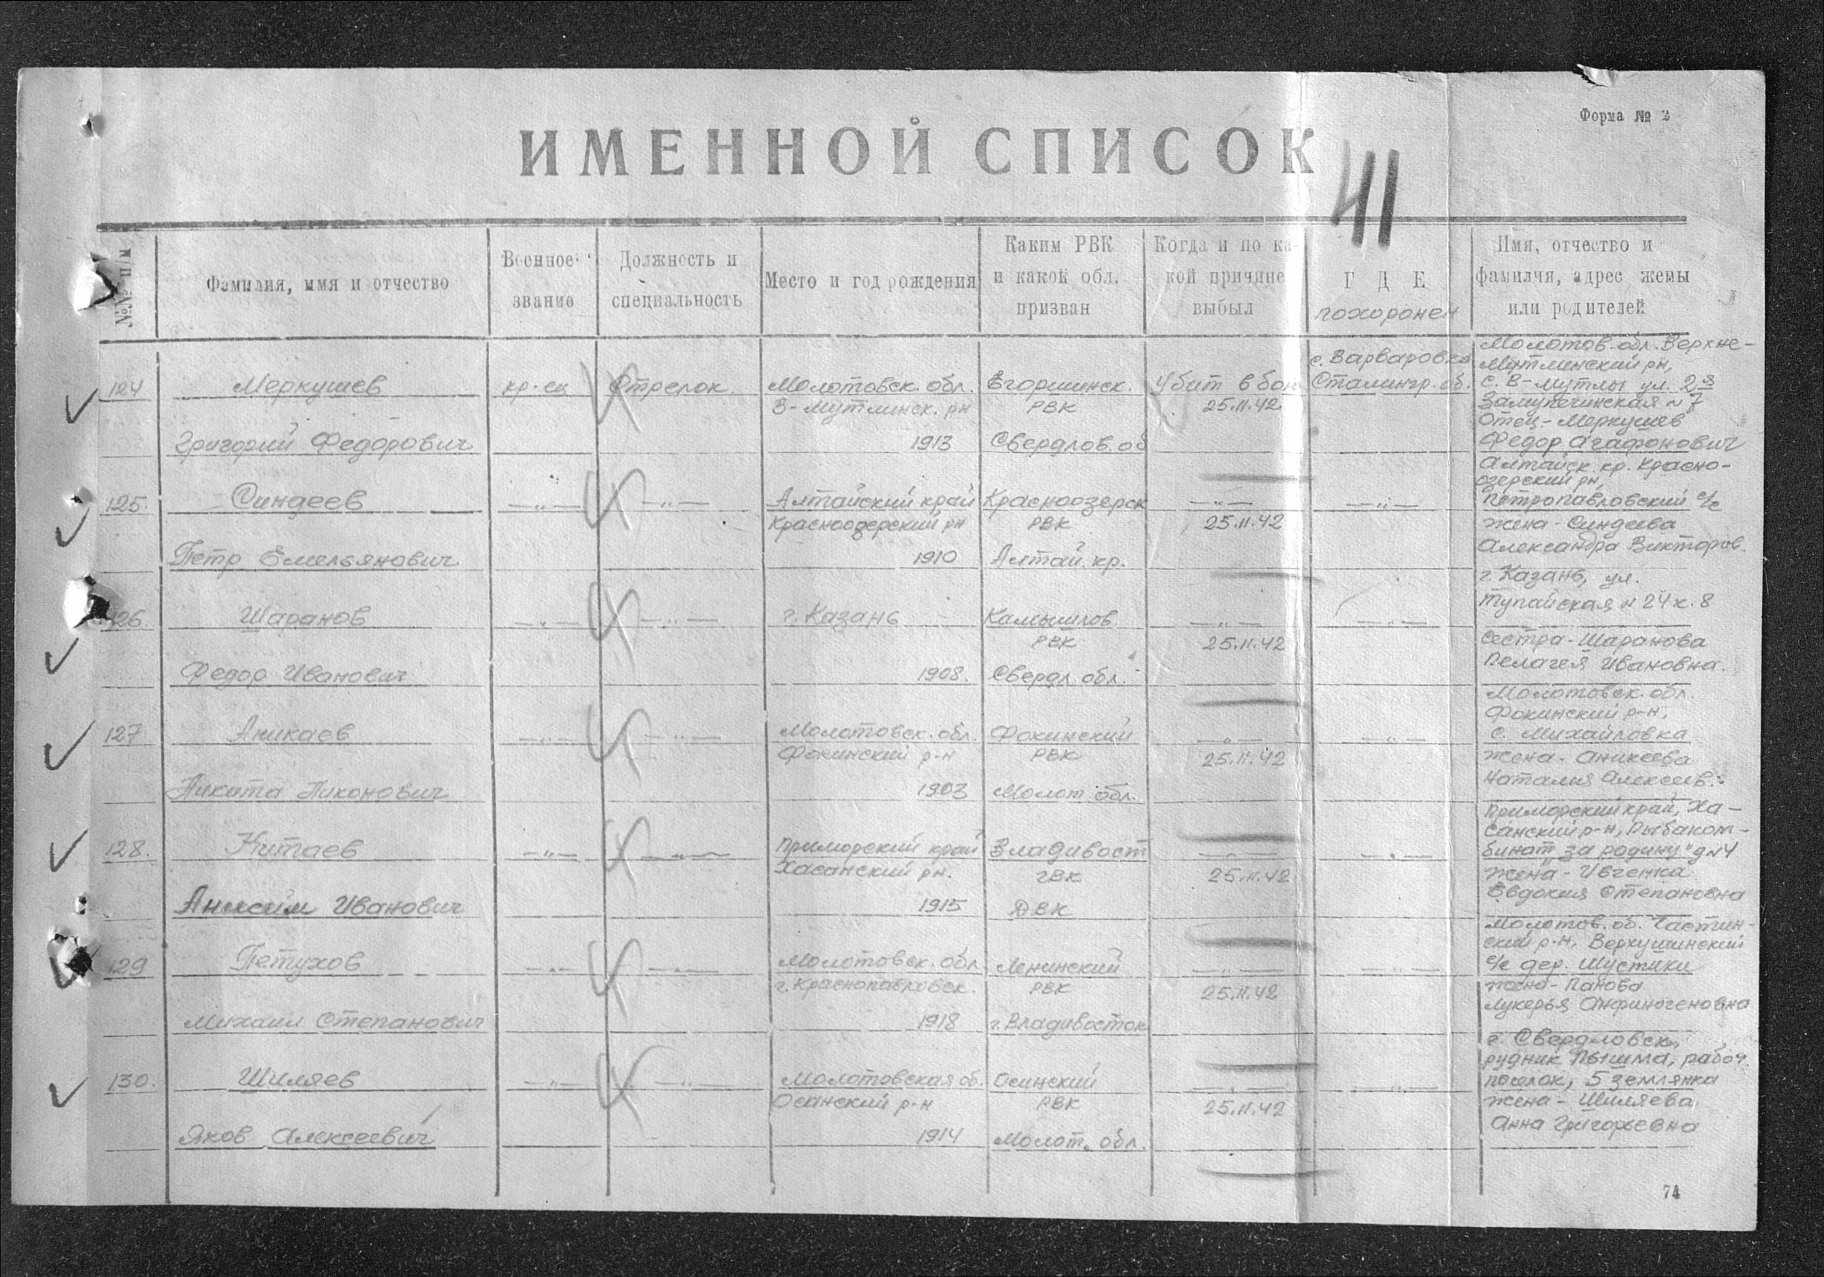 Форма № 2
ИМЕННОЙ СПИСОК
41
№№ п/п
Фамилия, имя и отчество
Военное звание
Должность и специальность
Место и год рождения
Каким РВК и какой обл. призван
Когда и по какой причине выбыл
ГДЕ похоронен
Имя, отчество и фамилия, адрес жены или родителей
124
Меркушев
Григорий Федорович
кр-ец
Стрелок
Молотовск. обл.
В-Мутлинск. рн
1913
Егоршинск.
РВК
Свердлов. об
Убит в бою
25.11.42
с. Варваровка
Сталингр. об.
Молотов. обл. Верхне-
Мутлинский рн,
с. В-Мутлы ул. 2я
Замупочинская №7
Отец - Меркушев
Федор Агафонович
125.
Синдеев
Петр Емельянович
—„—
—„—
Алтайский край
Красноозерский рн
1910
Красноозерск
РВК
Алтай. кр.
—„—
25.11.42
—„—
Алтайск. кр. Красно-
озерский рн,
Петропавловский с/с
жена - Синдеева
Александра Викторов.
126.
Шаранов
Федор Иванович
—„—
—„—
г. Казань
1908.
Камышлов
РВК
Свердл. обл.
—„—
25.11.42
—„—
г. Казань, ул.
Тупайская № 24 к. 8
Сестра - Шаранова
Пелагея Ивановна.
127
Аникаев
Никита Никонович
—„—
—„—
Молотовск. обл.
Фокинский р-н
1903
Фокинский
РВК
Молот. обл.
—„—
25.11.42
—„—
Молотовск. обл.
Фокинский р-н,
с. Михайловка
жена - Аникеева
Наталия Алексеев.
128.
Китаев
Анисим Иванович
—„—
—„—
Приморский край
Хасанский рн.
1915
Владивост
ГВК
ДВК
—„—
25.11.42
—„—
Приморский край, Ха-
санский р-н, Рыбаком-
бинат "за родину" д №4
жена - Ивченка
Евдокия Степановна
129
Петухов
Михаил Степанович
—„—
—„—
Молотовск. обл
г. Краснопавловск.
1918
Ленинский
РВК
г. Владивосток
—„—
25.11.42
—„—
Молотов. об. Частин-
ский р-н, Веркушинский
с/с дер. Шустики
жена - Панова
Лукерья Анфиногеновна
130.
Шиляев
Яков Алексеевич
—„—
—„—
Молотовская об.
Осинский р-н
1914
Осинский
РВК
Молот. обл.
—„—
25.11.42
—„—
г. Свердловск,
рудник Пышма, рабоч.
поселок, 5 землянка
жена - Шиляева
Анна Григорьевна
74